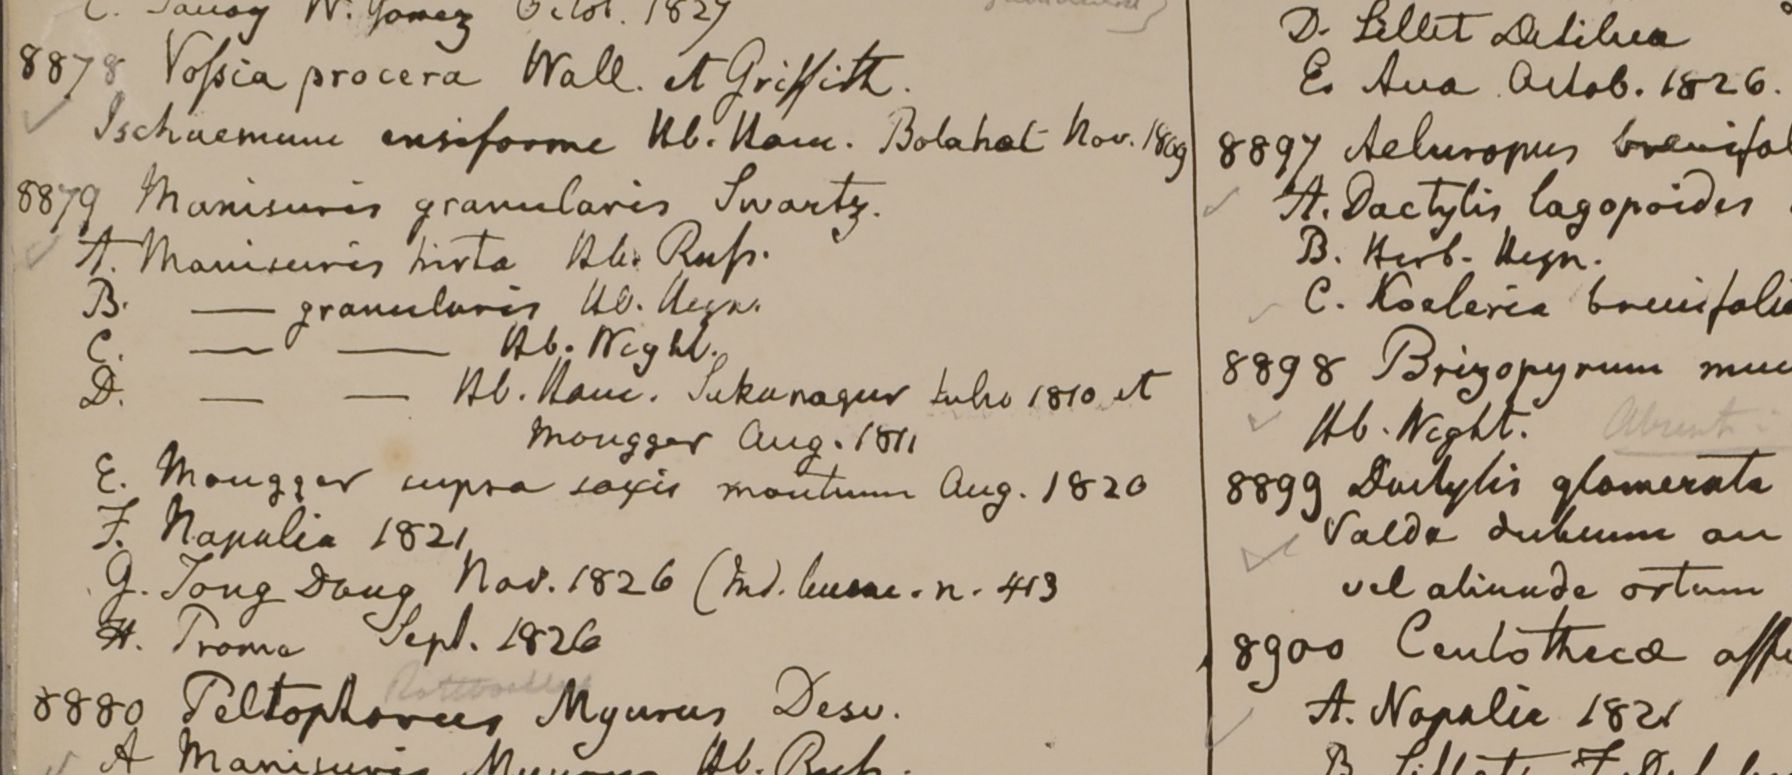 C. Tavoy W. Gomez Octob. 1827
8878 Voſsia procera Wall. et Griffith.
Ischaemum ensiforme Hb. Ham. Bolahat Nov. 1809
8879 Manisuris granularis Swartz.
A. Manisuris hirta Hb. Ruſs.
B. — granularis Hb. Heyn.
C. — — Hb. Wight.
D. — — Hb. Ham. Sukanagur Julio 1810 et
Mongger Aug. 1811
E. Mongger supra saxis montium Aug. 1820
F. Napalia 1821
G. Tong Dong Nov. 1826 (Ind. burm. n. 413
H. Prome Sept. 1826
Rottboellia
8880 Peltophorus Myurus Desv.
A Manisuris Myurus Hb. Ruſs.
D. Sillet Desilva
E. Ava Octob. 1826.
8897 Aeluropus brevifol
A. Dactylis lagopoides
B. Herb. Heyn.
C. Koeleria brevifolia
8898 Brizopyrum muc
Hb. Wight. Absent
8899 Dactylis glomerata
Valde dubium an
vel aliunde ortum
8900 Centotheca
A. Napalia 1821
B. Sillet F. D.